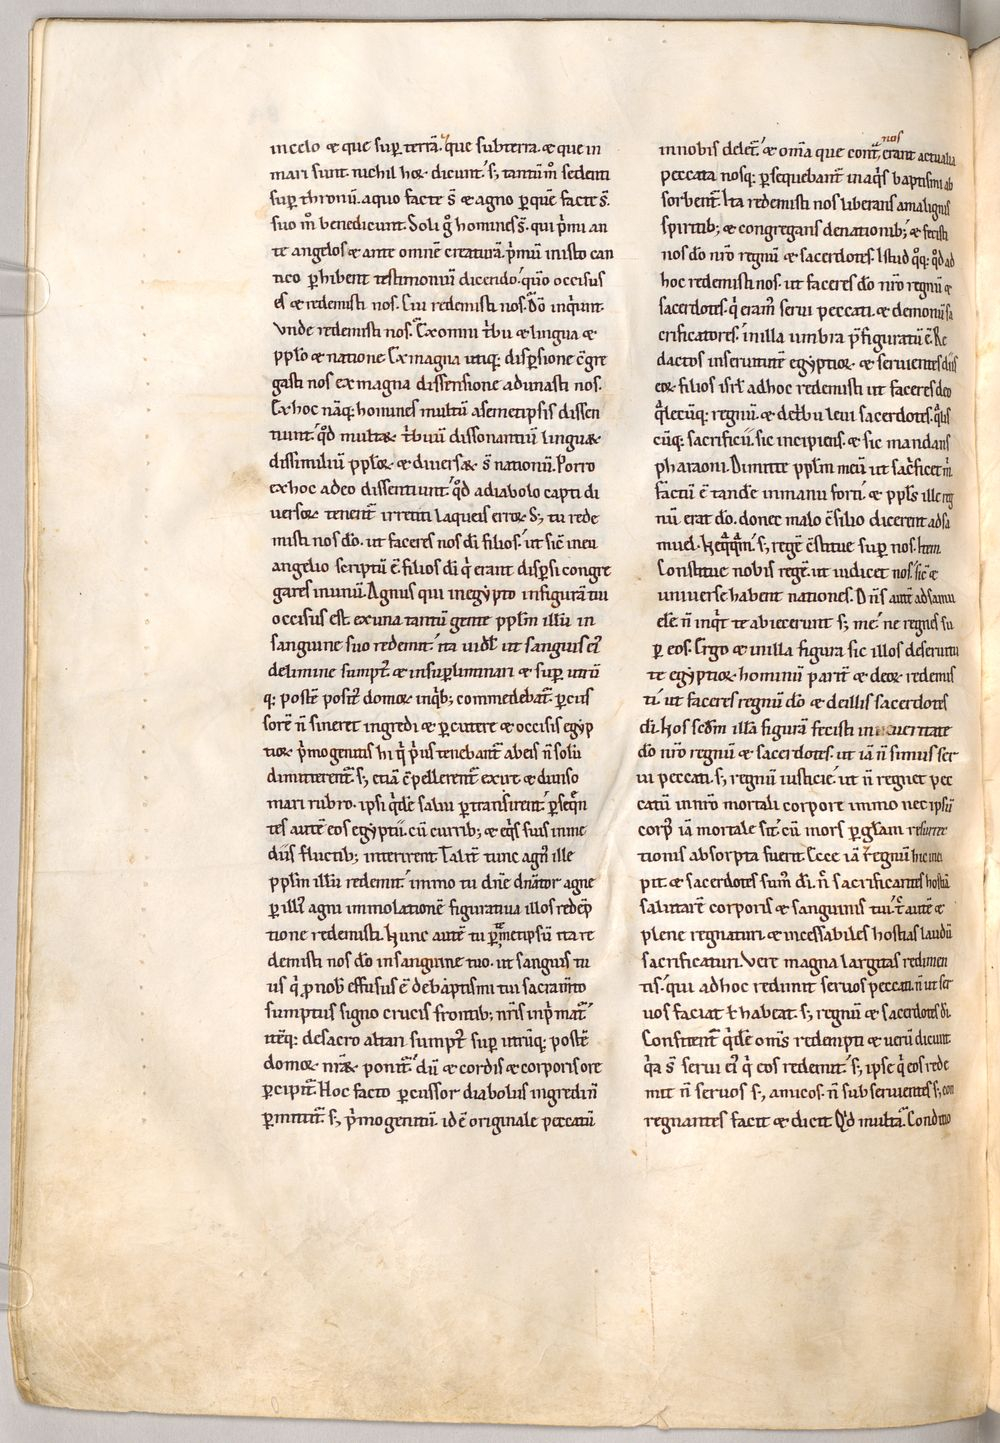 incelo ⁊ que suꝑ terrā. que subterra. ⁊ que in
mari sunt. nichil hoꝝ dicunt. s; tantūm̊ sedenti
suꝑ thronū. aquo facte s̄ ⁊ agno ꝑquē facte s̄.
suo m̊ benedicunt. Soli g̊ homines s̄. qui p̄mi an
te angelos ⁊ ante omnē creaturā. p̄mū inisto can
tico ꝑhibent testimoniū dicendo. quō occisus
es ⁊ redemisti nos. Cui redemisti nos. Dō inquiunt.
Vnde redemisti nos. Ex omni tribu ⁊ lingua ⁊
pplo ⁊ natione. Ex magna utiq; disꝑsione ēgre
gasti nos ex magna dissensione adunasti nos.
Ex hoc nāq; homines multū asemetipsis dissen
tiunt. qđ multaꝝ tribuū dissonantiū linguaꝝ
dissimiliū pploꝝ ⁊ diversaꝝ s̄ nationū. Porro
exhoc adeo dissentiunt. qđ adiabolo capti di
uersoꝝ tenent̄ irretiti laqueis erroꝝ. S; tu rede
misti nos dō. ut faceres nos dī filios. ut sic̄ in eu
angelio scriptū ē. filios dī q̄ erant disꝑsi congre
gares inunū. Agnus qui inegypto infigurā tui
occisus est. ex una tantū gente pplm̄ illū in
sanguine suo redemit. ita uidel̄. ut sanguis ei᷒
delimine sumpt᷒ ⁊ insuꝑliminari ⁊ suꝑ utrū
q; postē posit᷒ domoꝝ inq̄b; commedebat̄. ꝑcus
sorē n̄ sineret ingredi ⁊ ꝑcutere ⁊ occisis egyp
tioꝝ p̄mogenitis hi q̄ p̄us tenebant̄ ab eis n̄ solū
dimitterent̄. s; etiā ēpellerent̄ exire ⁊ diuiso
mari rubro. ipsi q̄dē salui ꝑtransirent. ꝑseq̄n
tes autē eos egyptii. cū currib; ⁊ eq̄s suis in me
diis fluctib; interirent. Talit̄ tunc agn᷒ ille
pplm̄ illū redemit. immo tu dn̄e dn̄ator agne
ꝑ illi᷒ agni immolationē figuratiua illos redēp
tione redemisti. Hunc autē tu ꝑmetipsū ita re
demisti nos dō in sanguine tuo. ut sanguis tu
us q̄ ꝓ nob̄ effusus ē debaptismi tui sacram̄to
sumptus signo crucis frontib; nr̄is inp̄mat̄.
itēq; desacro altari sumpt᷒ suꝑ utrūq; postē
domoꝝ nr̄aꝝ ponit̄. dū ⁊ cordis ⁊ corporis ore
ꝑcipit̄. Hoc facto ꝑcussor diabolus ingredi n̄
ꝑmittit̄. s; p̄mogenitū. id ē originale peccatū
nos
innobis delet̄. ⁊ om̄a que cont̄ erant actualia
peccata nosq; ꝑsequebant̄ inaq̄s baptismi ab
sorbent̄. Ita redemisti nos liberans amalignis
spiritib; ⁊ congregans denationib; ⁊ fecisti
nos dō nr̄o regnū ⁊ sacerdotes. Istud q̊q; qđ ad
hoc redemisti nos. ut faceres dō nr̄o regnū ⁊
sacerdotes. q̄ eram᷒ serui peccati. ⁊ demoniis sa
crificatores. in illa umbra p̄figuratū ē. Re
dactos inseruitutē egyptioꝝ ⁊ seruientes diis
eoꝝ filios isrl̄ adhoc redemisti ut faceres deo
q̄lecūq; regnū. ⁊ detribu leui sacerdotes. q̄lis
cūq; sacrificii. sic incipiens. ⁊ sic mandans
pharaoni. Dimitte pplm̄ meū ut sac̄ficet m̄.
factū ē tandē inmanu forti. ⁊ ppls̄ ille reg
nū erat dō. donec malo ēsilio dicerent adsa
muel. s; regē ēstitue suꝑ nos. Item
Constitue nobis regē. ut iudicet nos. sic̄ ⁊
uniuerse habent nationes. Dn̄s autē ad samu
elē. n̄ inq̄t te abiecerunt s; me. ne regnē su
ꝑ eos. Ergo ⁊ inilla figura sic illos deseruitu
te egyptioꝝ hominū parit̄ ⁊ deoꝝ redemis
ti. ut faceres regnū dō ⁊ deillis sacerdotes
dī. Hos scd̄m illā figurā fecisti in ueritate
dō nr̄o regnū ⁊ sacerdotes. ut iā n̄ simus ser
ui peccati. s; regnū iusticie. ut n̄ regnet pec
catū in nr̄o mortali corpore immo nec ipsū
corp᷒ iā mortale sit. cū mors ꝑ gl̄am resurrec
tionis absorpta fuerit. Ecce iā regnū hic inci
pit ⁊ sacerdotes sum᷒ dī. n̄ sacrificantes hostiā
salutarē corporis ⁊ sanguinis tui. autē ⁊
plene regnaturi. ⁊ incessabiles hostias laudū
sacrificaturi. Vere magna largitas redimen
tis. qui adhoc redimit seruos peccati. n̄ ut ser
uos faciat ł habeat. s; regnū ⁊ sacerdotes dī.
Confitent̄ q̄dē om̄s redempti ⁊ uerū dicunt
q̄a s̄ serui ei᷒ q̄ eos redemit. s; ipse q̄ eos rede
mit n̄ seruos s; amicos. n̄ subseruientes s; con
regnantes facit ⁊ dicit. Qđ multā. Conditio